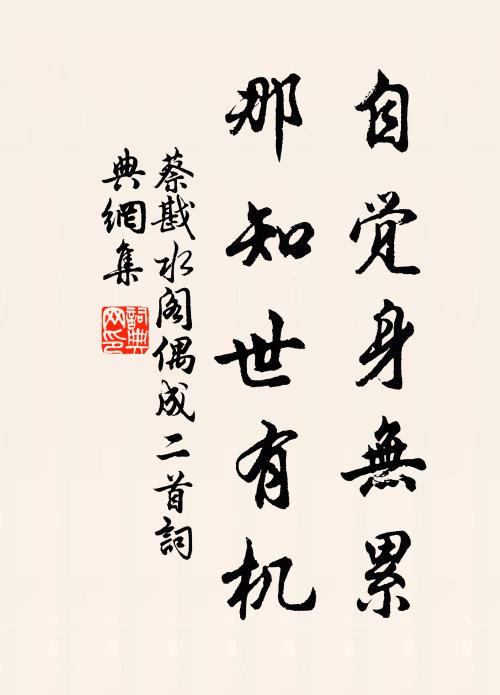 自觉身無累
那知世有机
蔡戡水阁偶成二首詞
典網集
詞典网印